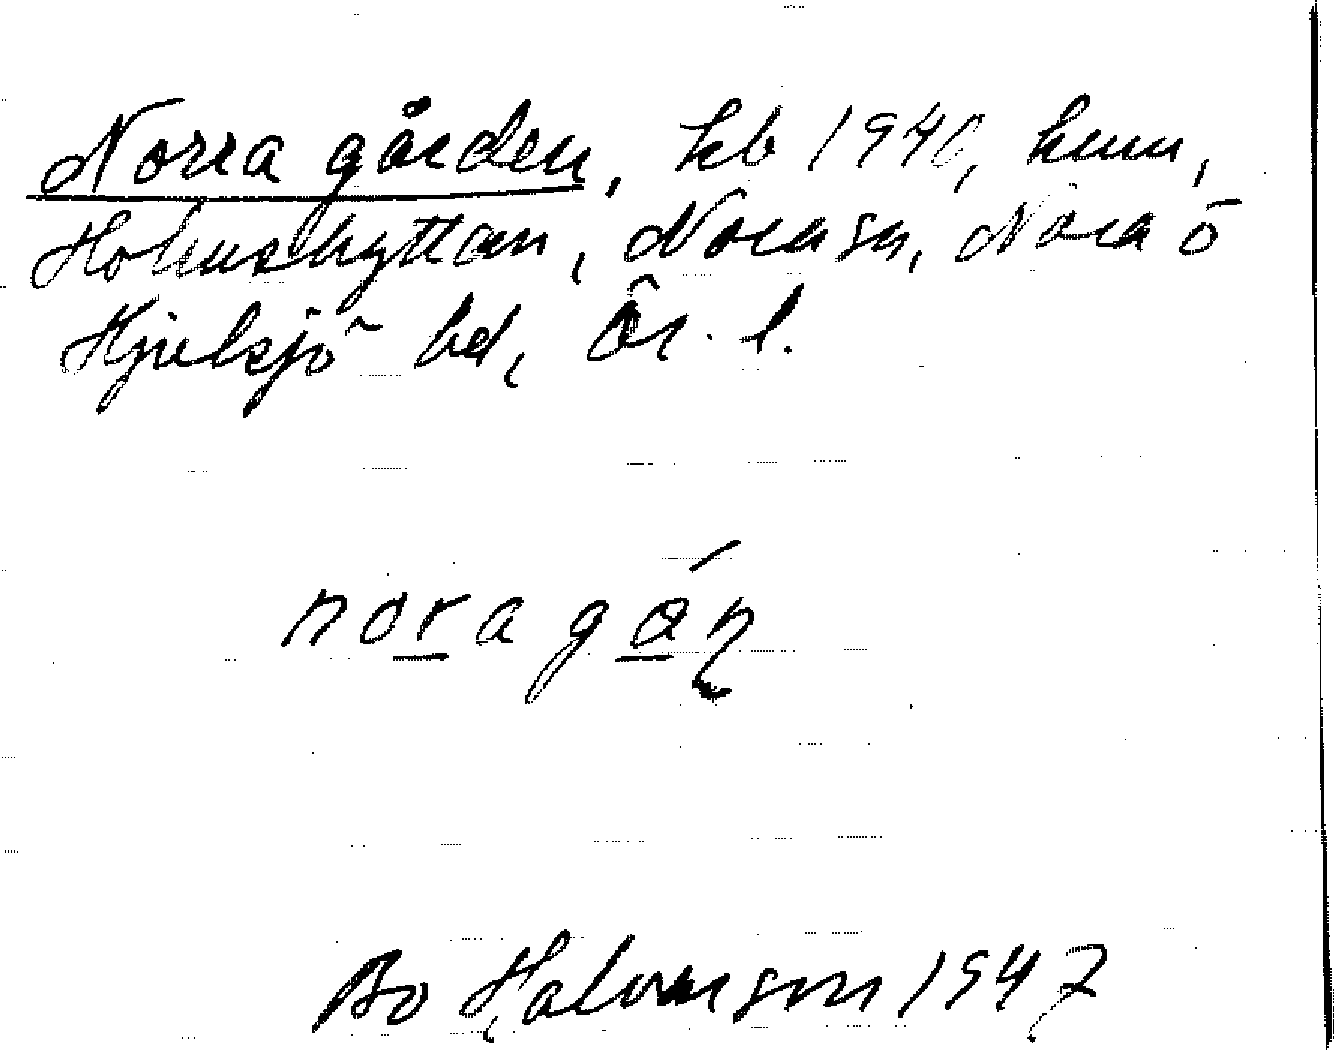 Norra gården, kb 1940, hmn,
Holmshyttan, Nora sn, Nora o
Hjulsjö bd, Ör. l.
nora gón
Bo Halvarson 1947